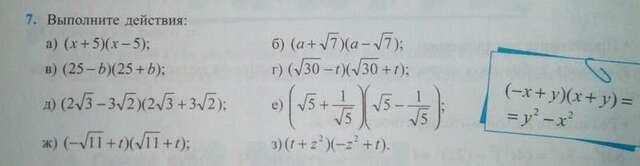 7. Выполните действия:
а) (x + 5)(x − 5); б) (a + √7)(a − √7);
в) (25 − b)(25 + b); г) (√30 − t)(√30 + t);
д) (2√3 − 3√2)(2√3 + 3√2); е) (√5 + 1/√5)(√5 − 1/√5);
ж) (−√11 + t)(√11 + t); з) (t + z²)(−z² + t).
(−x + y)(x + y) =
= y² − x²